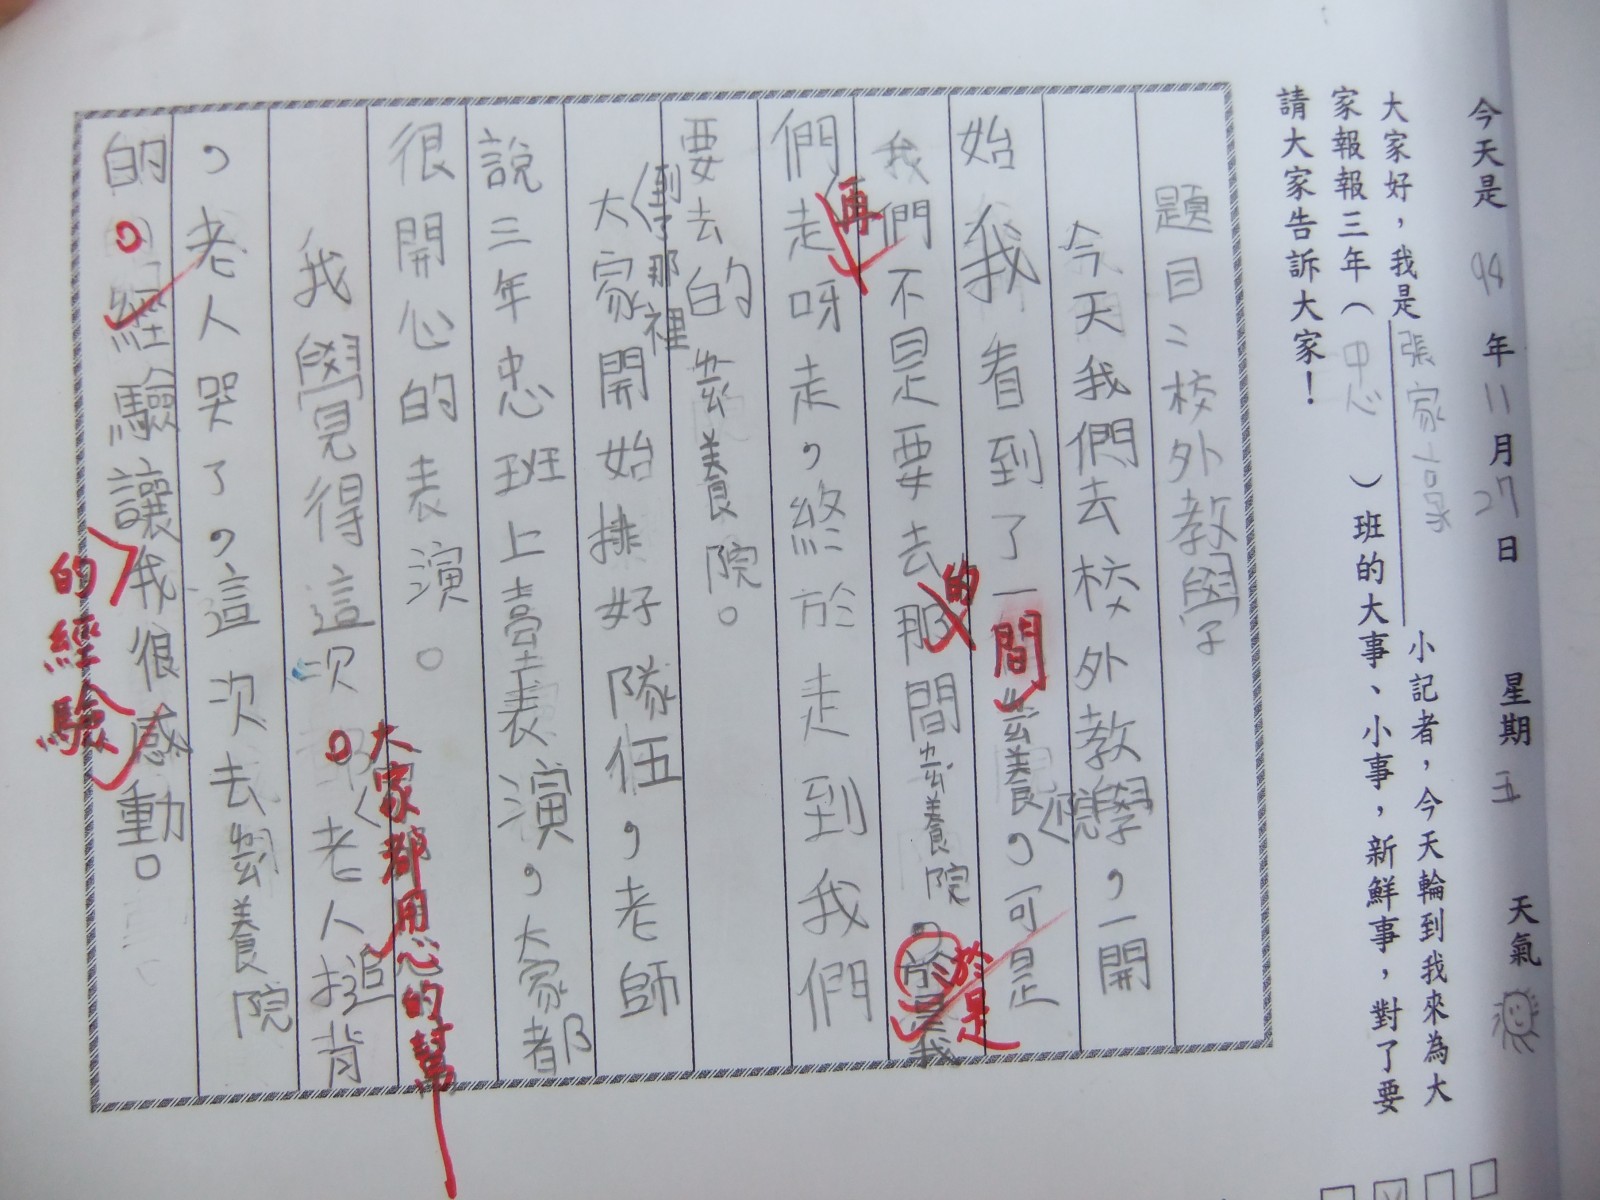 今天是 99 年 11 月 27 日 星期 五 天氣
大家好，我是 張家 小記者，今天輪到我來為大
家報報三年（中心）班的大事、小事，新鮮事，對了要
請大家告訴大家！
題目：校外教學
今天我們去校外教學，一開
始我看到了一間安養院，可是
我們不是要去那間安養院，於是我
的
於是
們再走呀走，終於走到我們
要去的安養院。
到了那裡
大家開始排好隊伍，老師
說三年忠班上臺表演，大家都
很開心的表演。
大家都用心的幫
我覺得這次。老人搥背
，老人哭了，這次去安養院
的。經驗讓我很感動。
的經驗